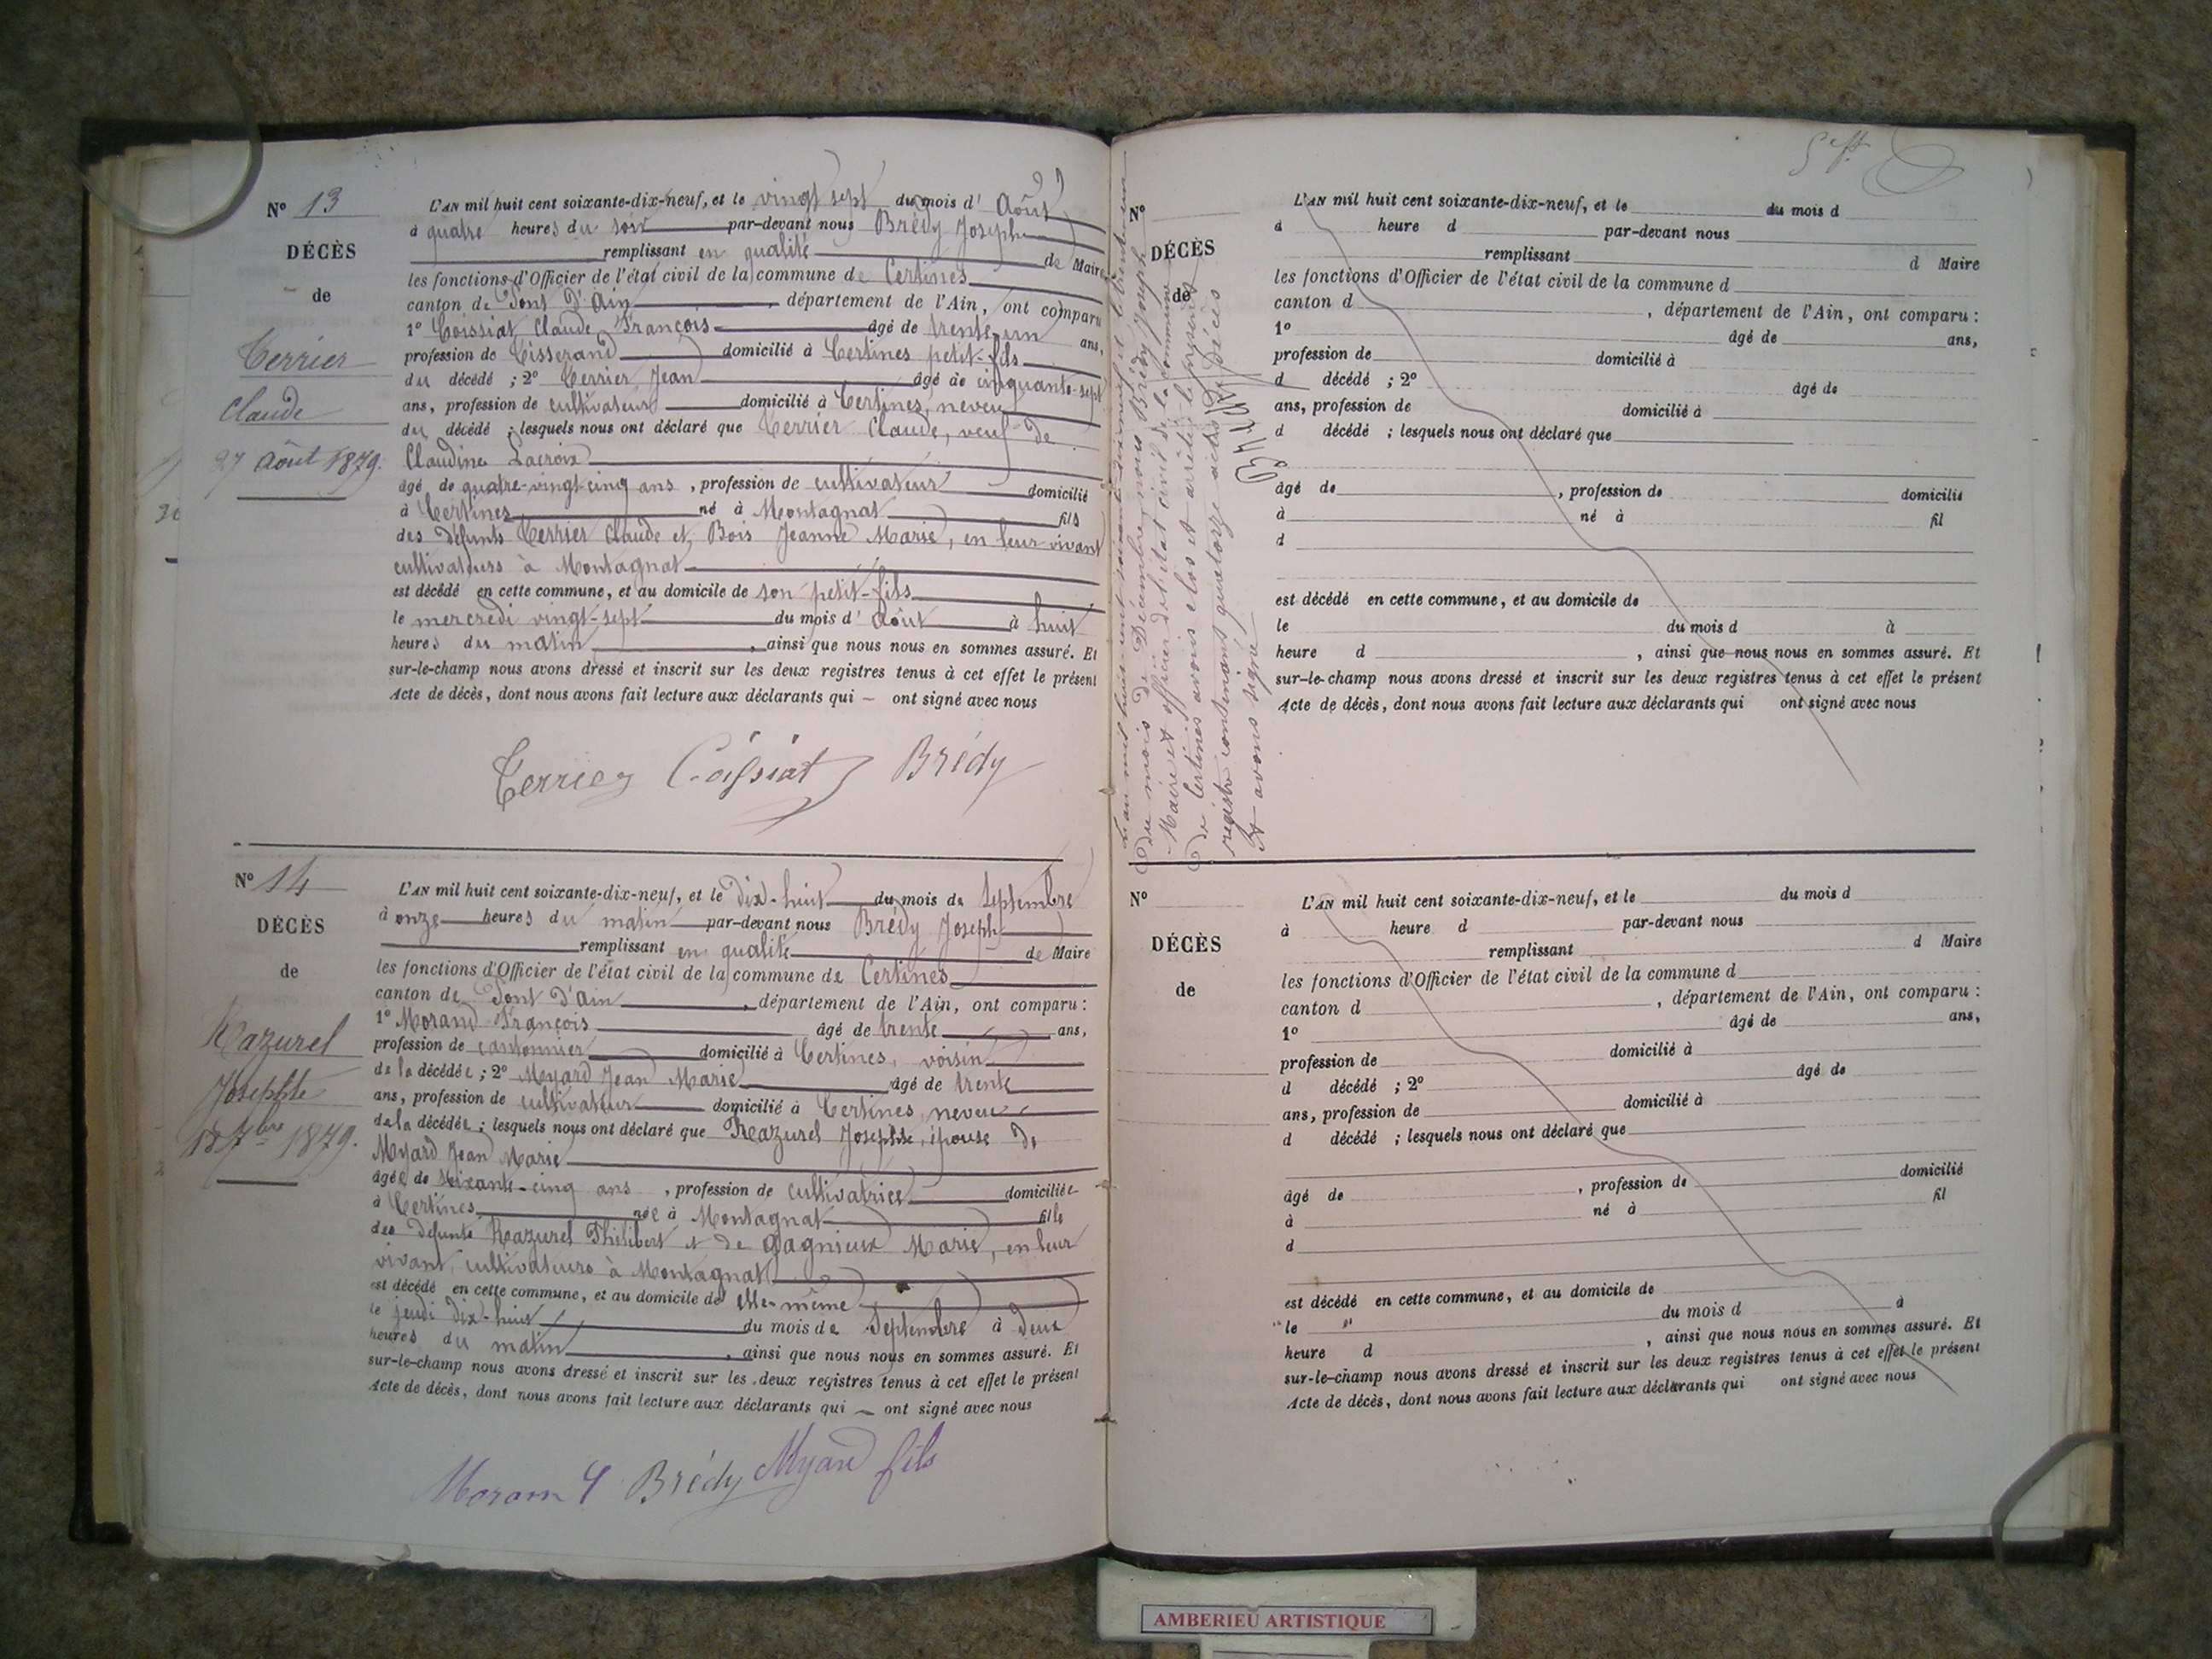 N° 13
DÉCÈS
de
Terrier
Claude
27 Août 1879.
L'AN mil huit cent soixante-dix-neuf, et le vingt sept du mois d' Août
à quatre heures du soir par-devant nous Brédy Joseph
remplissant en qualité de Maire
les fonctions d'Officier de l'état civil de la commune de Certines
canton de Pont d'Ain, département de l'Ain, ont comparu
1° Coissiat Claude François âgé de trente-un ans,
profession de Tisserand domicilié à Certines petit-fils
du décédé ; 2° Terrier Jean âgé de cinquante-sept
ans, profession de cultivateur domicilié à Certines, neveu
du décédé ; lesquels nous ont déclaré que Terrier Claude, veuf de
Claudine Lacroix
âgé de quatre-vingt-cinq ans, profession de cultivateur domicilié
à Certines né à Montagnat fils
des défunts Terrier Claude et Bois Jeanne Marie, en leur vivant
cultivateurs à Montagnat
est décédé en cette commune, et au domicile de son petit-fils
le mercredi vingt-sept du mois d' Août à huit
heures du matin, ainsi que nous nous en sommes assuré. Et
sur-le-champ nous avons dressé et inscrit sur les deux registres tenus à cet effet le présent
Acte de décès, dont nous avons fait lecture aux déclarants qui — ont signé avec nous
Terrier Coissiat Brédy
N° 14
DÉCÈS
de
Mazurel
Josephte
18 7bre 1879.
L'AN mil huit cent soixante-dix-neuf, et le dix-huit du mois de Septembre
à onze heures du matin par-devant nous Brédy Joseph
remplissant en qualité de Maire
les fonctions d'Officier de l'état civil de la commune de Certines
canton de Pont d'Ain, département de l'Ain, ont comparu :
1° Morand François âgé de trente ans,
profession de cantonnier domicilié à Certines, voisin
de la décédée ; 2° Myard Jean Marie âgé de trente
ans, profession de cultivateur domicilié à Certines, neveu
de la décédée ; lesquels nous ont déclaré que Mazurel Josephte, épouse de
Myard Jean Marie
âgée de soixante-cinq ans, profession de cultivatrice domiciliée
à Certines née à Montagnat fille
des défunts Mazurel Philibert et de Gagnieux Marie, en leur
vivant, cultivateurs à Montagnat
est décédé en cette commune, et au domicile de elle-même
le jeudi dix-huit du mois de Septembre à deux
heures du matin, ainsi que nous nous en sommes assuré. Et
sur-le-champ nous avons dressé et inscrit sur les deux registres tenus à cet effet le présent
Acte de décès, dont nous avons fait lecture aux déclarants qui — ont signé avec nous
Morand Brédy Myard fils
L'an mil huit cent soixante-dix-neuf et le trente-un
du mois de Décembre, nous Brédy Joseph
Maire et officier de l'état civil de la commune
de Certines avons clos et arrêté le présent
registre contenant quatorze actes de décès
et avons signé
Brédy
N°
DÉCÈS
de
L'AN mil huit cent soixante-dix-neuf, et le du mois d
à heure d par-devant nous
remplissant d Maire
les fonctions d'Officier de l'état civil de la commune d
canton d , département de l'Ain, ont comparu :
1° âgé de ans,
profession de domicilié à
d décédé ; 2° âgé de
ans, profession de domicilié à
d décédé ; lesquels nous ont déclaré que
âgé de , profession de domicilié
à né à fil
d
est décédé en cette commune, et au domicile de
le du mois d à
heure d , ainsi que nous nous en sommes assuré. Et
sur-le-champ nous avons dressé et inscrit sur les deux registres tenus à cet effet le présent
Acte de décès, dont nous avons fait lecture aux déclarants qui ont signé avec nous
N°
DÉCÈS
de
L'AN mil huit cent soixante-dix-neuf, et le du mois d
à heure d par-devant nous
remplissant d Maire
les fonctions d'Officier de l'état civil de la commune d
canton d , département de l'Ain, ont comparu :
1° âgé de ans,
profession de domicilié à
d décédé ; 2° âgé de
ans, profession de domicilié à
d décédé ; lesquels nous ont déclaré que
âgé de , profession de domicilié
à né à fil
d
est décédé en cette commune, et au domicile de
le du mois d à
heure d , ainsi que nous nous en sommes assuré. Et
sur-le-champ nous avons dressé et inscrit sur les deux registres tenus à cet effet le présent
Acte de décès, dont nous avons fait lecture aux déclarants qui ont signé avec nous
AMBERIEU ARTISTIQUE